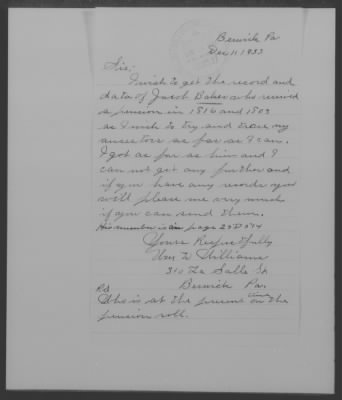 Berwick Pa
Dec 11 1933
Sir;
I wish to get the record and
data of Jacob Baker who received
a pension in 1816 and 1803
as I wish to try and trace my
ancestors as far as I can.
I got as far as him and I
can not get any further and
if you have any records you
will please me very much
if you can send them.
His number is on page
Yours Respectfully
Wm D Williams
310 La Salle St
Berwick Pa.
P.S.
Who is at the present time on the
pension roll.